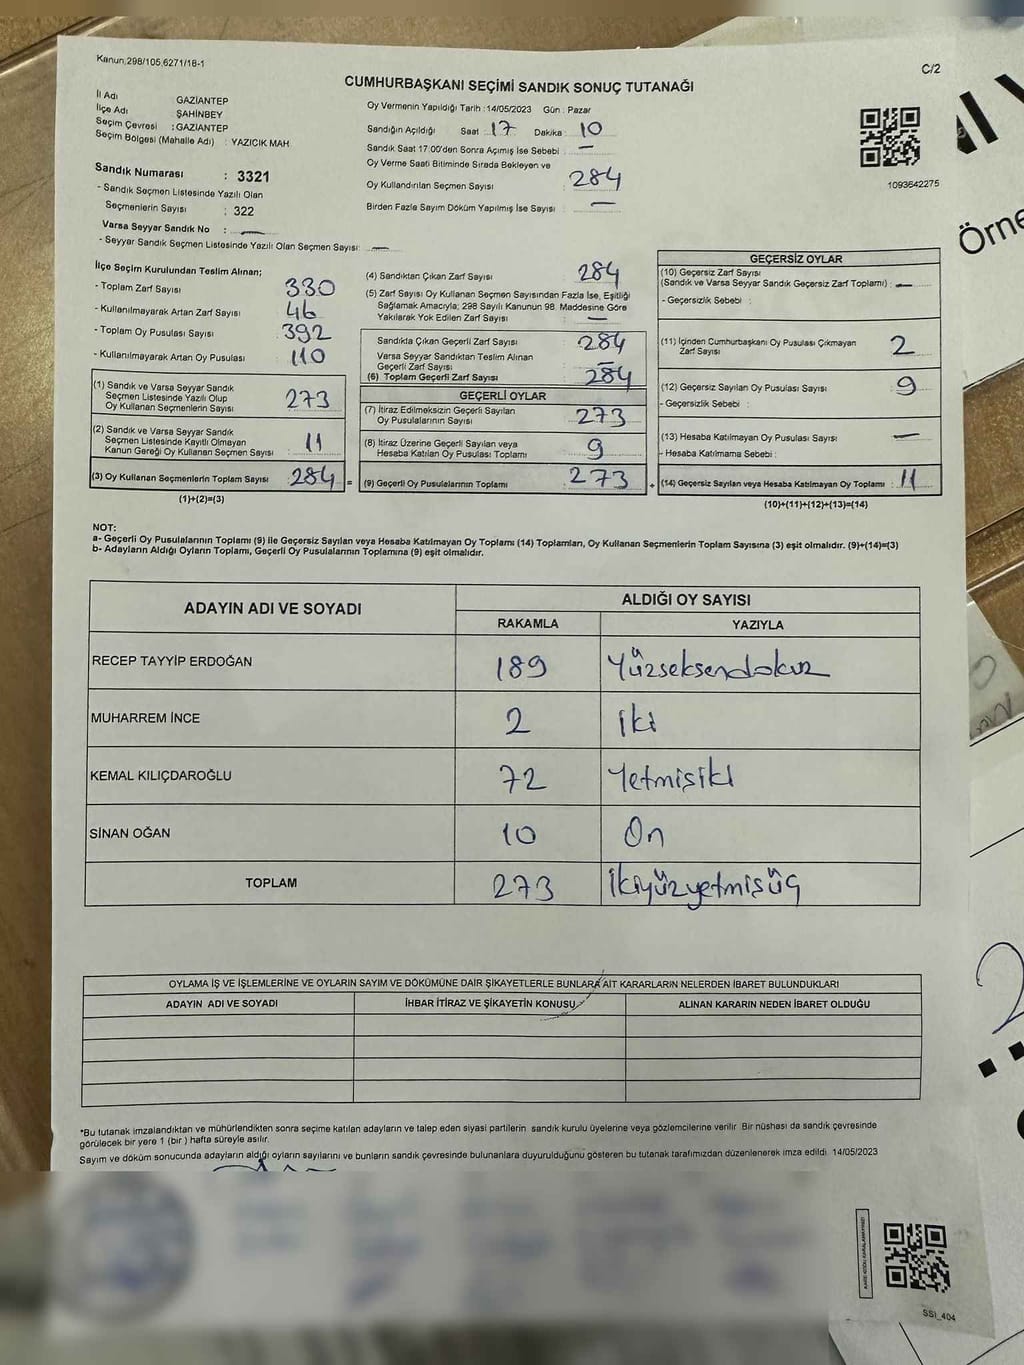 Kanun,298/105,6271/18-1
C/2
CUMHURBAŞKANI SEÇİMİ SANDIK SONUÇ TUTANAĞI
İl Adı GAZİANTEP
İlçe Adı ŞAHİNBEY
Seçim Çevresi : GAZİANTEP
Seçim Bölgesi (Mahalle Adı) : YAZICIK MAH.
Sandık Numarası : 3321
- Sandık Seçmen Listesinde Yazılı Olan
Seçmenlerin Sayısı : 322
Varsa Seyyar Sandık No : —
- Seyyar Sandık Seçmen Listesinde Yazılı Olan Seçmen Sayısı: —
Oy Vermenin Yapıldığı Tarih : 14/05/2023 Gün : Pazar
Sandığın Açıldığı Saat 17 Dakika 10
Sandık Saat 17:00'den Sonra Açımış İse Sebebi : —
Oy Verme Saati Bitiminde Sırada Bekleyen ve
Oy Kullandırılan Seçmen Sayısı : 284
Birden Fazla Sayım Döküm Yapılmış İse Sayısı : —
1093642275
Örne
İlçe Seçim Kurulundan Teslim Alınan;
- Toplam Zarf Sayısı : 330
- Kullanılmayarak Artan Zarf Sayısı : 46
- Toplam Oy Pusulası Sayısı : 392
- Kullanılmayarak Artan Oy Pusulası : 110
(1) Sandık ve Varsa Seyyar Sandık
Seçmen Listesinde Yazılı Olup
Oy Kullanan Seçmenlerin Sayısı : 273
(2) Sandık ve Varsa Seyyar Sandık
Seçmen Listesinde Kayıtlı Olmayan
Kanun Gereği Oy Kullanan Seçmen Sayısı : 11
(3) Oy Kullanan Seçmenlerin Toplam Sayısı : 284 =
(1)+(2)=(3)
(4) Sandıktan Çıkan Zarf Sayısı : 284
(5) Zarf Sayısı Oy Kullanan Seçmen Sayısından Fazla İse, Eşitliği
Sağlamak Amacıyla; 298 Sayılı Kanunun 98. Maddesine Göre
Yakılarak Yok Edilen Zarf Sayısı : —
Sandıkta Çıkan Geçerli Zarf Sayısı : 284
Varsa Seyyar Sandıktan Teslim Alınan
Geçerli Zarf Sayısı : —
(6) Toplam Geçerli Zarf Sayısı : 284
GEÇERLİ OYLAR
(7) İtiraz Edilmeksizin Geçerli Sayılan
Oy Pusulalarının Sayısı : 273
(8) İtiraz Üzerine Geçerli Sayılan veya
Hesaba Katılan Oy Pusulası Toplamı : 9
(9) Geçerli Oy Pusulalarının Toplamı : 273 +
GEÇERSİZ OYLAR
(10) Geçersiz Zarf Sayısı
(Sandık ve Varsa Seyyar Sandık Geçersiz Zarf Toplamı) : —
- Geçersizlik Sebebi :
(11) İçinden Cumhurbaşkanı Oy Pusulası Çıkmayan
Zarf Sayısı : 2
(12) Geçersiz Sayılan Oy Pusulası Sayısı : 9
- Geçersizlik Sebebi :
(13) Hesaba Katılmayan Oy Pusulası Sayısı : —
- Hesaba Katılmama Sebebi :
(14) Geçersiz Sayılan veya Hesaba Katılmayan Oy Toplamı : 11
(10)+(11)+(12)+(13)=(14)
NOT:
a- Geçerli Oy Pusulalarının Toplamı (9) ile Geçersiz Sayılan veya Hesaba Katılmayan Oy Toplamı (14) Toplamları, Oy Kullanan Seçmenlerin Toplam Sayısına (3) eşit olmalıdır. (9)+(14)=(3)
b- Adayların Aldığı Oyların Toplamı, Geçerli Oy Pusulalarının Toplamına (9) eşit olmalıdır.
ADAYIN ADI VE SOYADI ALDIĞI OY SAYISI
RAKAMLA YAZIYLA
RECEP TAYYİP ERDOĞAN 189 Yüzseksendokuz
MUHARREM İNCE 2 iki
KEMAL KILIÇDAROĞLU 72 Yetmişiki
SİNAN OĞAN 10 On
TOPLAM 273 İkiyüzyetmişüç
OYLAMA İŞ VE İŞLEMLERİNE VE OYLARIN SAYIM VE DÖKÜMÜNE DAİR ŞİKAYETLERLE BUNLARA AİT KARARLARIN NELERDEN İBARET BULUNDUKLARI
ADAYIN ADI VE SOYADI İHBAR İTİRAZ VE ŞİKAYETİN KONUSU ALINAN KARARIN NEDEN İBARET OLDUĞU
*Bu tutanak imzalandıktan ve mühürlendikten sonra seçime katılan adayların ve talep eden siyasi partilerin sandık kurulu üyelerine veya gözlemcilerine verilir Bir nüshası da sandık çevresinde
görülecek bir yere 1 (bir) hafta süreyle asılır.
Sayım ve döküm sonucunda adayların aldığı oyların sayılarını ve bunların sandık çevresinde bulunanlara duyurulduğunu gösteren bu tutanak tarafımızdan düzenlenerek imza edildi. 14/05/2023
SSI_404